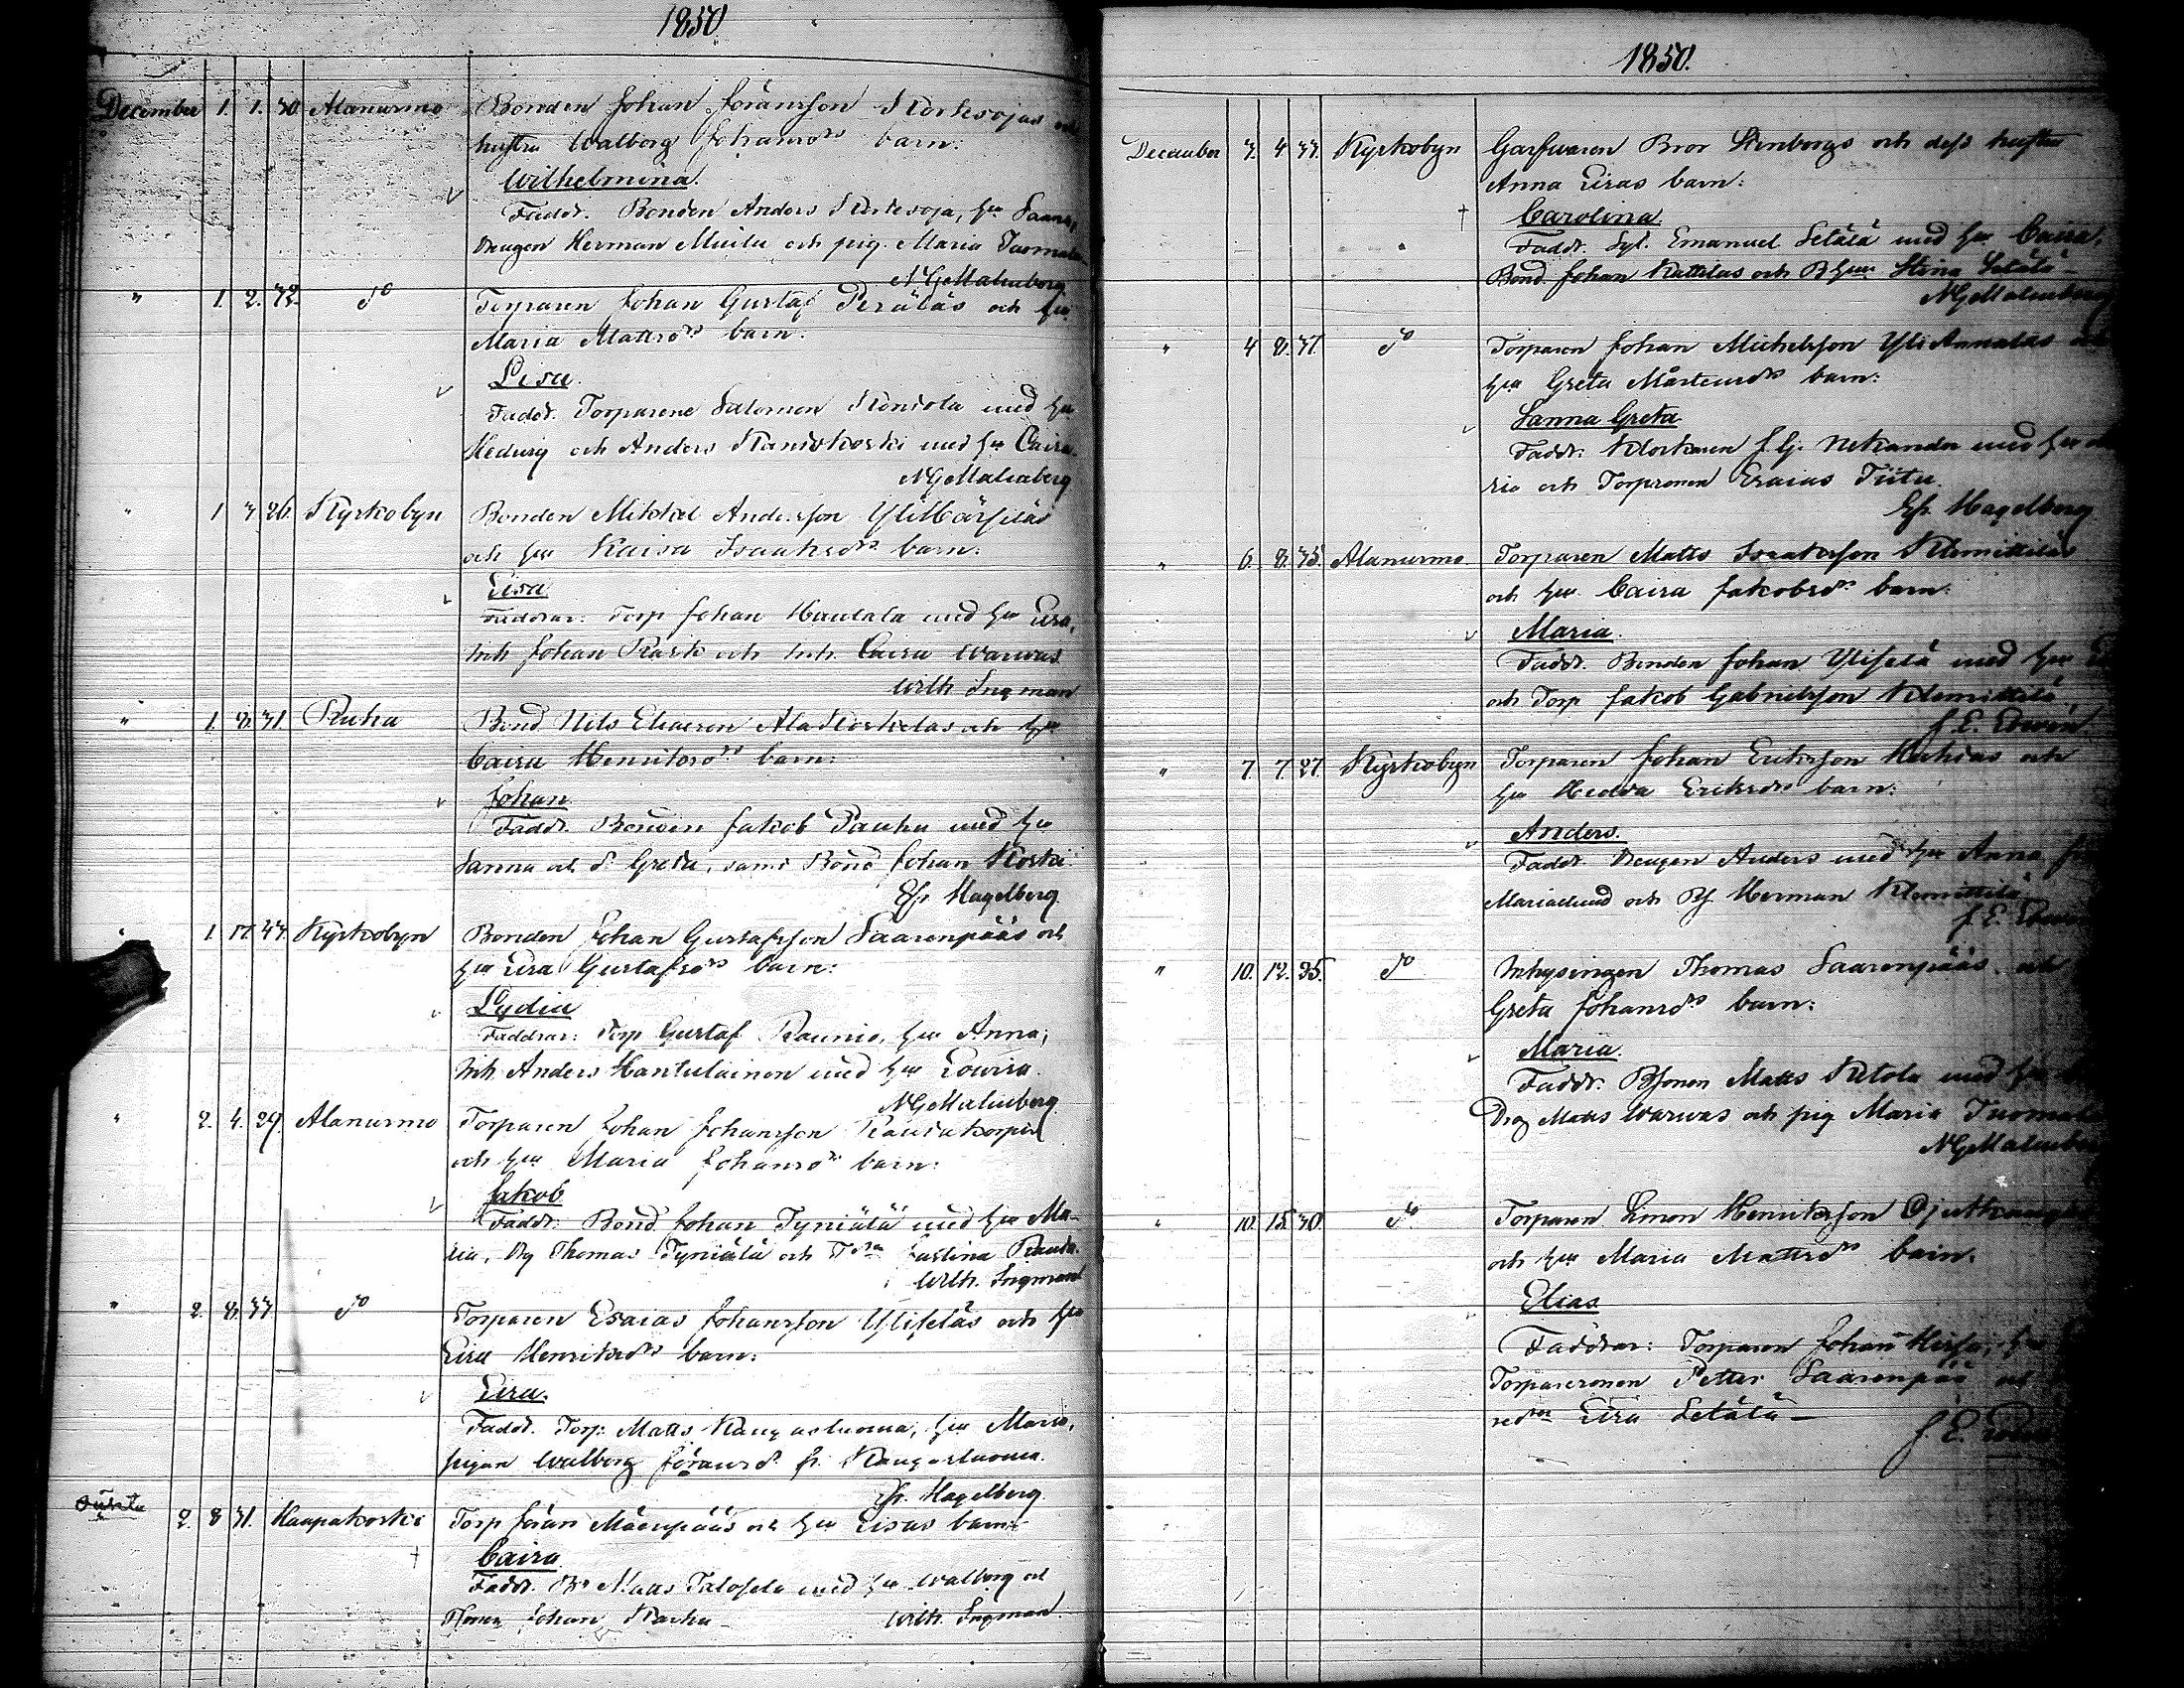 1850
December 1. 1. 30 Alanurmo Bonden Johan Jöransson Korkeojas och
hustru Walborg Johansdr barn:
Wilhelmina.
Faddr. Bonden Anders Korkeoja, hu Sanna,
Drengen Herman och pig. Maria
N G Malmberg
" 1. 2. 32. do Torparen Johan Gustaf Peräläs och hu
Maria Mattsdr barn:
Lisa.
Faddr. Torparene Salomon med hu
Hedvig och Anders Kaniokoski med hu Caisa.
N G Malmberg
" 1 3 26. Kyrkobyn Bonden Mikkel Andersson
och hu Kaisa Isaaksdr barn:
Lisa
Faddrar: Torp Johan Hautala med hu Lisa,
Inh Johan Rask och Inh. Caisa Warwas
Wilh Ingman
" 1. 8. 31. Ruha Bond. Nils Eliasson Ala och hu
Caisa Henriksdr barn:
Johan
Faddr. Bonden Jakob Pauhu med hu
Sanna och d. Greta, samt Bond Johan Koski
Hagelberg.
" 1. 17. 43. Kyrkobyn Bonden Johan Gustafsson Saarenpääs och
hu Lisa Gustafsdr barn:
Lydia
Faddrar: Torp Gustaf Raunio, hu Anna,
Inh. Anders Hantulainen med hu Lovisa.
N G Malmberg.
" 2. 4. 29. Alanurmo Torparen Johan Johansson Rautakorpis
och hu Maria Johansdr barn:
Jakob
Faddr: Bond Johan Tyniälä med hu Ma-
ria, Dg Thomas Tyniälä och Justina
Wilh. Ingman
" 2. 8. 33. do Torparen Esaias Johansson Yliseläs och hu
Lisa Henriksdr barn:
Lisa.
Faddr. Torp: Matts Kangasluoma, hu Maria,
pigan Walborg Jöransd. fr. Kangasluoma.
Hagelberg.
2. 8 31. Haapakoski Torp Jöran Mäenpääs och hu Lisas barn:
Caisa
Faddr. Br Matts Talosela med hu Walborg och
Johan Karhu Wilh. Ingman
1850.
December 3. 4 33. Kyrkobyn Garfvaren Bror Stenborgs och dess hustru
Anna Lisas barn:
Carolina
Faddr. Emanuel Setälä med hu Caisa,
Bond Johan Kattilas och Stina Setälä
N G Malmberg
" 4 8. 37. do Torparen Johan Michelsson Yli Annalas
hu Greta Mårtensdr barn:
Sanna Greta
Faddr: Klockaren J. G. Nekander med hu
ria och Torpsonen Esaias Tiitu.
Hagelberg
" 6. 8. 35. Alanurmo Torparen Matts Isaaksson Klemittiläs
och hu Caisa Jakobsdr barn:
Maria.
Faddr. Bonden Johan Yliselä med hu
och Torp Jakob Gabrielsson Klemittilä
J. E.
" 7. 7. 27. Kyrkobyn Torparen Johan Eriksson och
hu Hedva Eriksdr barn:
Anders.
Faddr. Drengen Anders med hu Anna
Marialund och Herman Klemittilä
J. E.
" 10. 12. 35. do Inhysingen Thomas Saarenpääs
Greta Johansdr barn:
Maria.
Faddr: Bsonen Matts Ketola med hu
Drg Matts Warwas och pig Maria
N G Malmberg
" 10. 15. 30. do Torparen Simon Henriksson
och hu Maria Mattsdr barn.
Elias
Faddrar: Torparen Johan
Torparesonen Petter Saarenpää
Lisa Setälä
J. E.